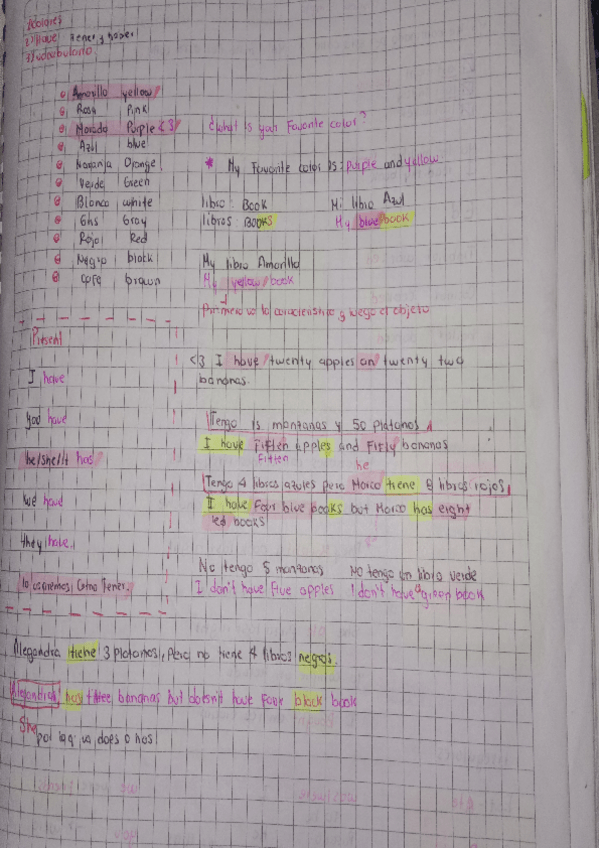 1)colores
2)Have tener y haber
3)vocabulario
Amarillo yellow
Rosa Pink
Morado Purple <3
Azul blue
Naranja Orange
Verde Green
Blanco white
Gris Gray
Rojo Red
Negro black
Cafe brown
¿What is your Favorite color?
* My Favorite color is: purple and yellow
libro: Book
libros Books
Mi libro Azul
My blue book
My libro Amarillo
My yellow book
Primero va la caracteristica y luego el objeto
Present
I have
you have
he/she/It has
we have
they have
lo usaremos como Tener.
<3 I have twenty apples an twenty two
bananas.
Tengo 15 manzanas y 50 platanos
I have Fiften apples and Fifty bananas
Fifteen
he
Tengo 4 libros azules pero Marco tiene 8 libros rojos
I have Four blue books but Marco has eight
red books
No tengo 5 manzanas
I don't have five apples
NO tengo un libro verde
I don't have a green book
Alegandra tiene 3 platanos, Pero no tiene 4 libros negros.
Alegandras has three bananas but doesn't have Four black book
She
por ia va does o has